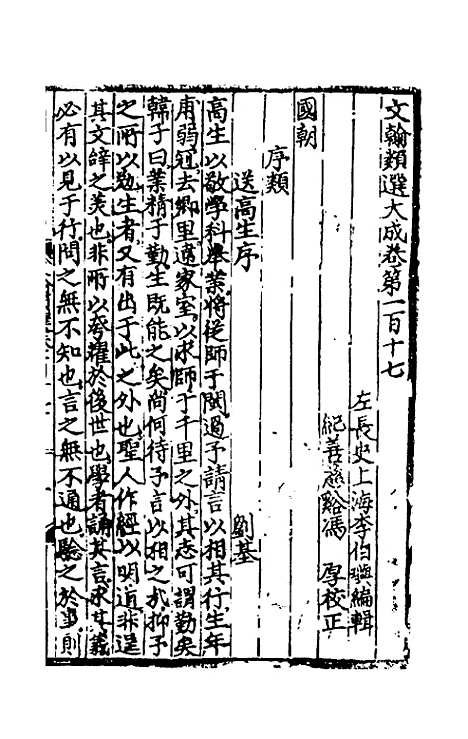 文翰類選大成卷第一百十七
左長史上海李伯璵編輯
紀善慈谿馮 厚校正
國朝
序類
送高生序 劉基
高生以敬學科舉業將從師于閩過予請言以相其行生年
甫弱冠去鄉里違家室以求師于千里之外其志可謂勤矣
韓子曰業精于勤生既能之矣尚何待予言以相之哉抑予
之所以勉生者又有出于此之外也聖人作經以明道非逞
其文辭之美也非所以夸耀於後世也學者誦其言求其義
必有以見于行問之無不知也言之無不通也驗之於事則